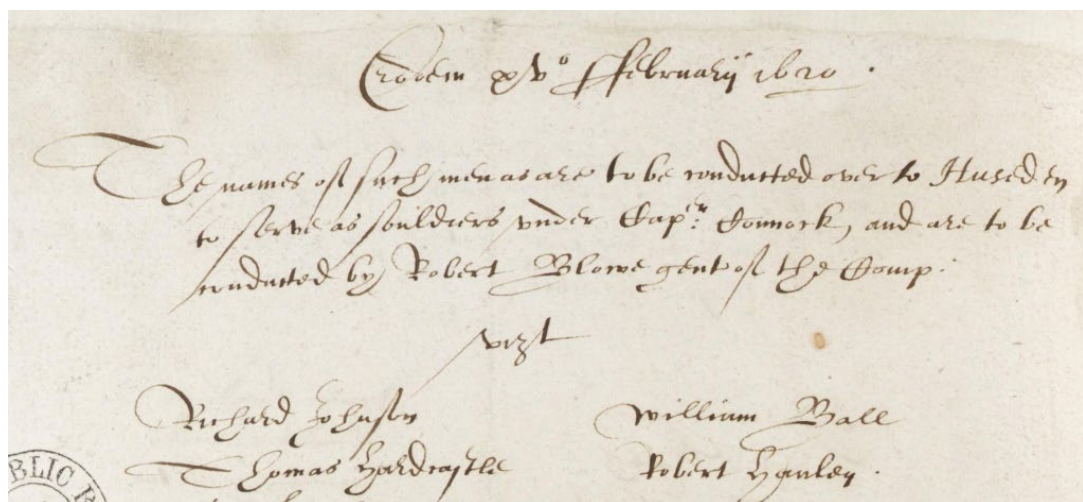 Eodem xv° ffebruarij 1620.
The names of such men as are to be conducted over to Huseden
to serve as souldiers vnder Cap:en Connock, and are to be
conducted by Robert Blowe gent of the Comp:
vizt
Richard Johnson William Ball
Thomas Hardcastle Robert Hanley.
BLIC R